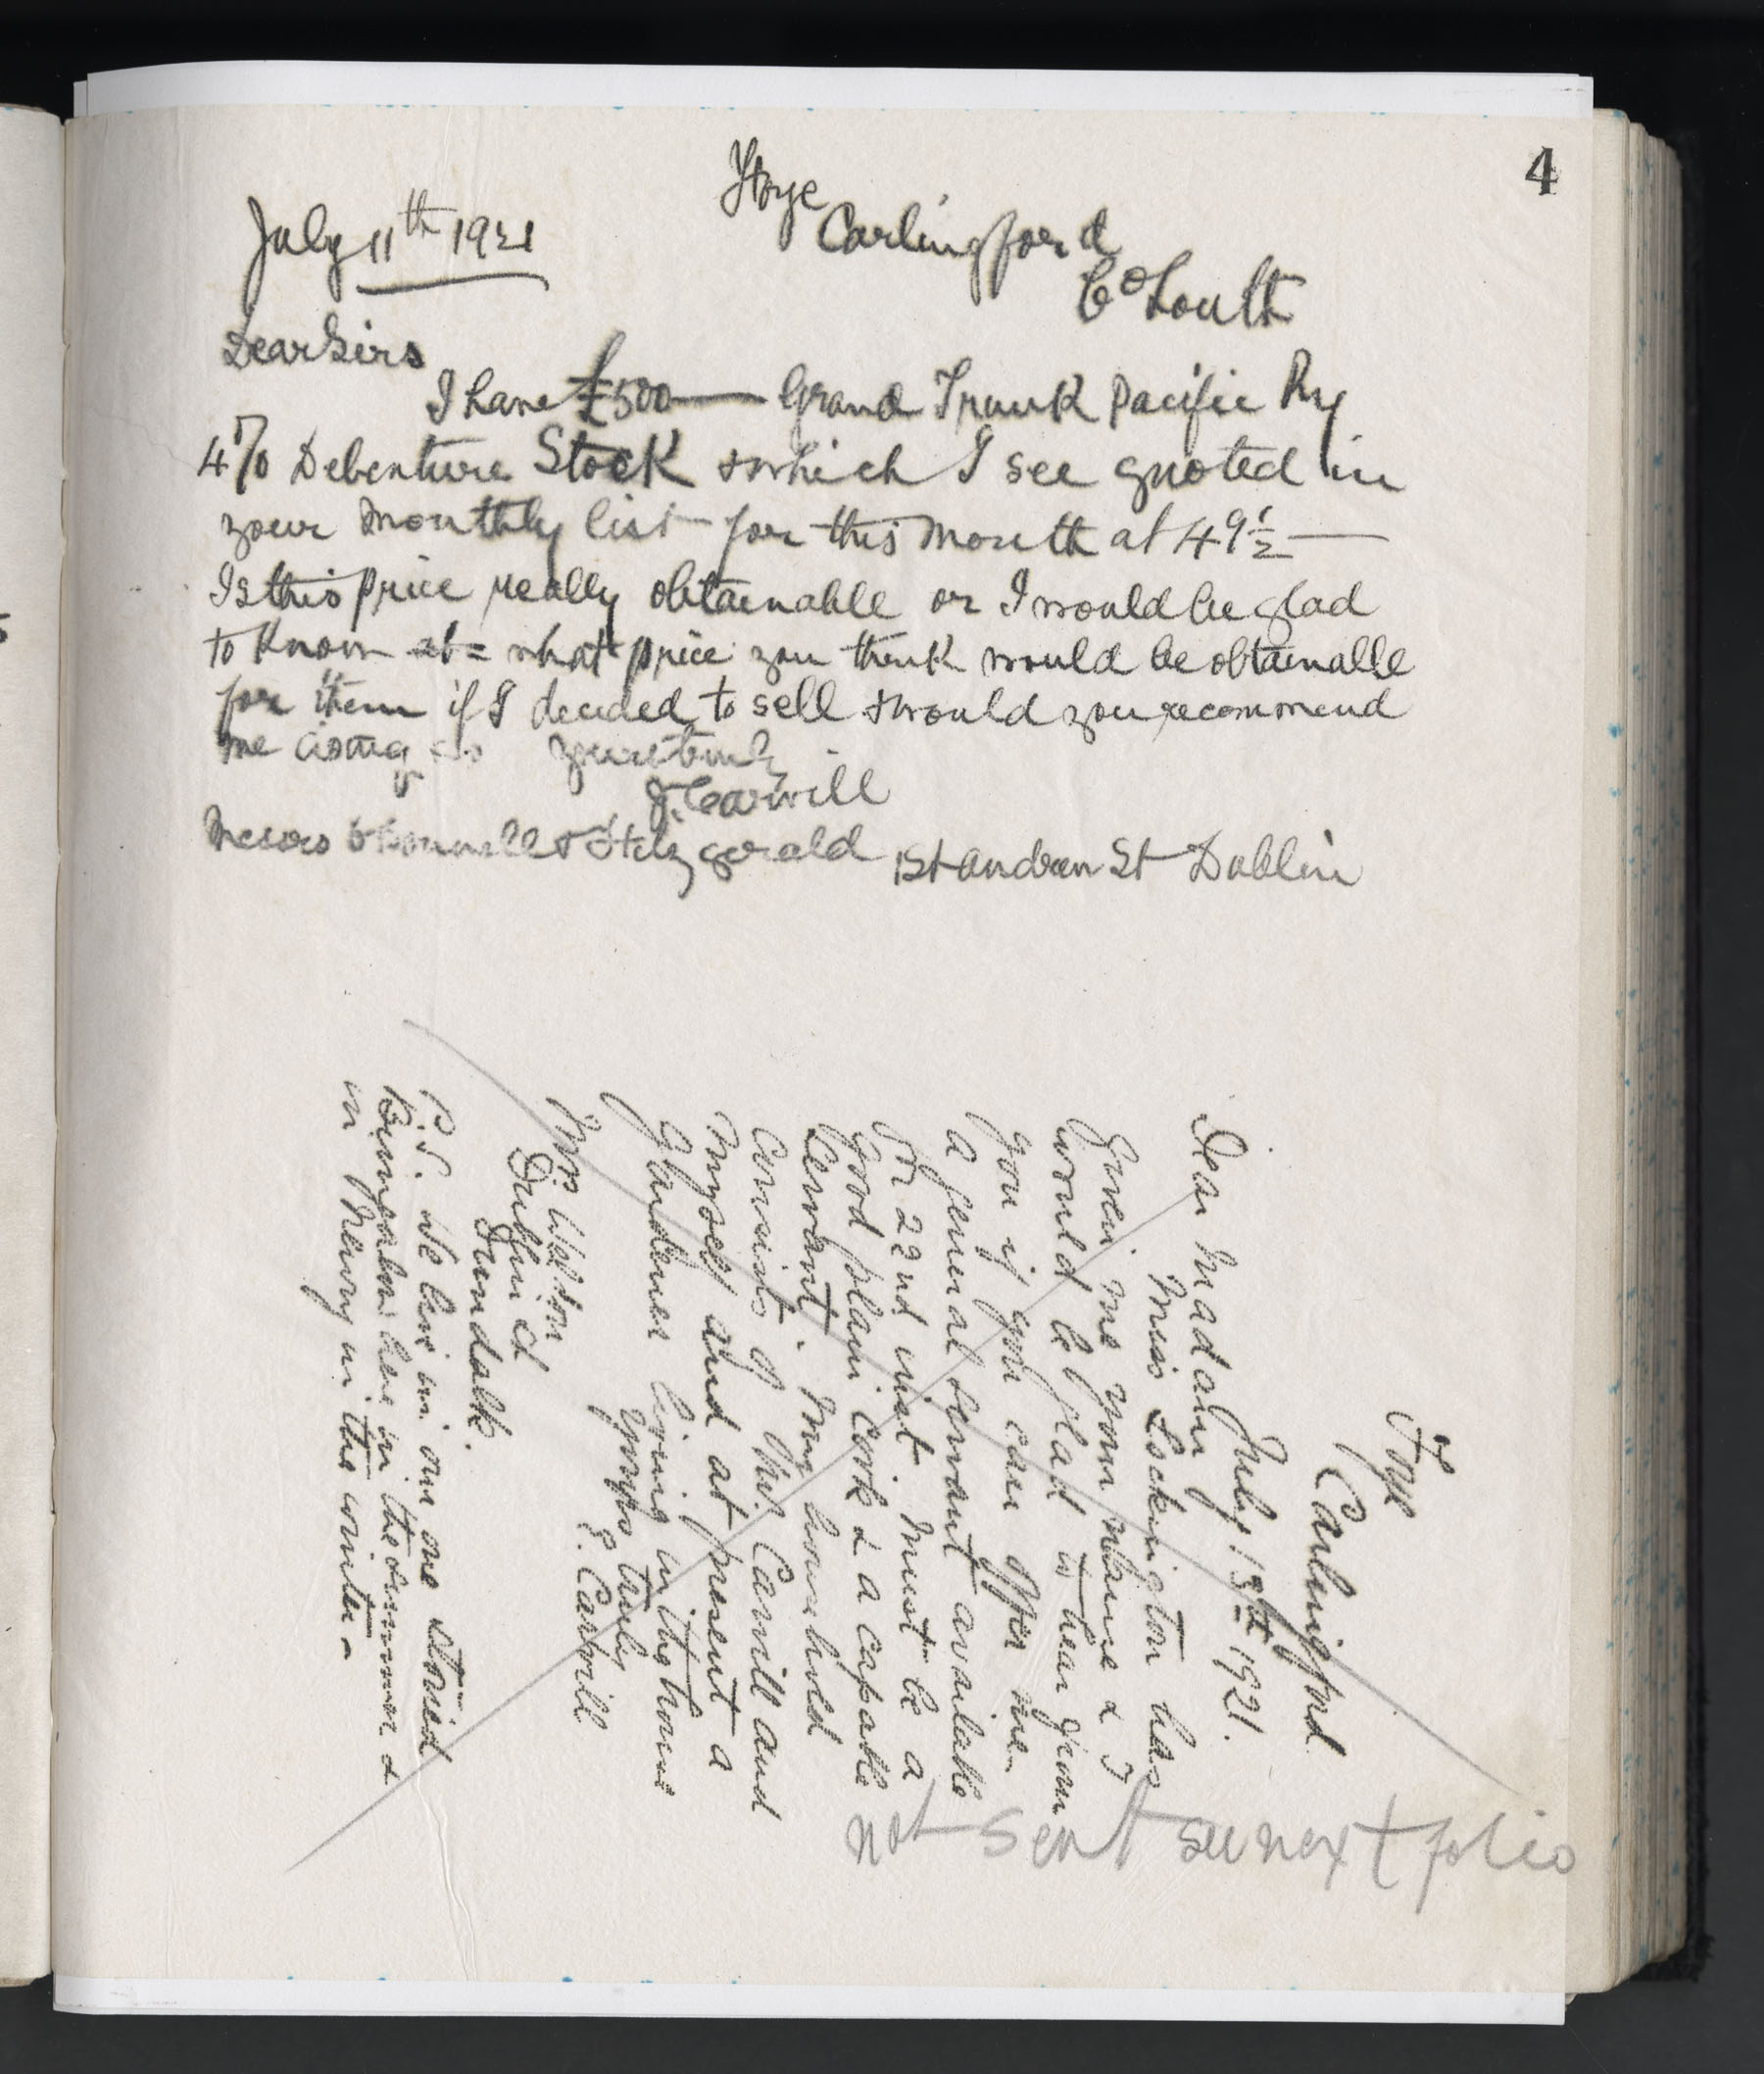 4
Foye
Carlingford
Co Louth
July 11th 1921
Dear Sirs
I have £500 — Grand Trunk Pacific Ry
4% Debenture Stock which I see quoted in
your monthly list for this month at 49 1/2 —
Is this price really obtainable or I would be glad
to know at = what price you think would be obtainable
for them if I decided to sell & would you recommend
me doing so yours truly
J. Carvill
Messrs O'Connell & Fitzgerald 1 St Andrew St Dublin
Foye
Carlingford
July 13th 1921.
Dear Madam
Miss Lockington has
given me your name & I
would be glad to hear from
you if you can offer me
a general servant available
for 22nd inst. Must be a
good plain cook & a capable
servant. My household
consists of Mr. Carvill and
myself and at present a
gardener living in the house
yours truly
E. Carvill
Mrs Watson
Dublin St
Dundalk.
P.S. We live in our one storied
Bungalow here in the summer &
in Newry in the winter -
not sent see next folio